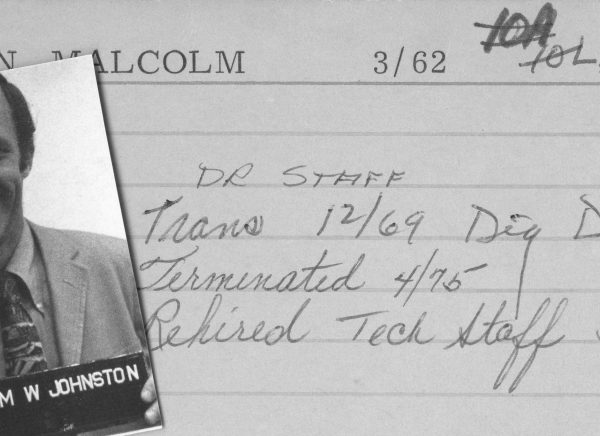 N MALCOLM 3/62 10A
10L
DR STAFF
Trans 12/69 Dig D
Terminated 4/75
Rehired Tech Staff
M W JOHNSTON